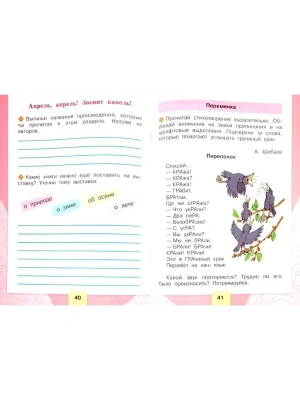 Апрель, апрель! Звенит капель!
Выпиши названия произведений, которые
ты прочитал в этом разделе. Назови их
авторов.
Какие книги можно ещё поставить на вы-
ставку? Уточни тему выставки.
о природе
о зиме
об осени
о лете
40
Переменка
Прочитай стихотворение выразительно. Об-
ращай внимание на знаки препинания и на
шрифтовые выделения. Подчеркни те слова,
которые помогают услышать грачиный крик.
А. Шибаев
Переполох
Слушай...
— КРАжа!
— КРАжа!
— КРАжа!
— ГРАбит,
БРАтцы.
Где же стРАжа?
— Что укРАли?
— Два пеРА,
— БезобРАзие!
— С утРА?
— Вы укРАли?
— Мы не бРАли.
— БРАли! БРАли!
КРАли! КРАли!
Это я ГРАчиный крик
Перевёл на наш язык.
Какой звук повторяется? Трудно ли его
было произносить? Потренируйся.
41